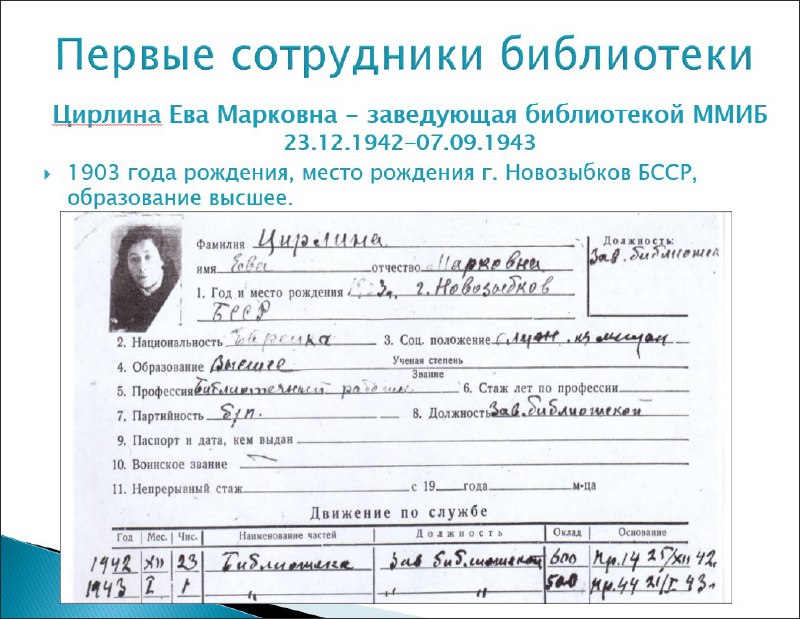 Первые сотрудники библиотеки
Цирлина Ева Марковна – заведующая библиотекой ММИБ
23.12.1942–07.09.1943
1903 года рождения, место рождения г. Новозыбков БССР,
образование высшее.
Должность:
Зав. библиотек
Фамилия Цирлина
имя Ева отчество Марковна
1. Год и место рождения г. Новозыбков
БССР
2. Национальность Еврейка 3. Соц. положение служ. из мещан
4. Образование Высшее Ученая степень
Звание
5. Профессия Библиотечный работн. 6. Стаж лет по профессии
7. Партийность б/п. 8. Должность Зав. библиотекой
9. Паспорт и дата, кем выдан
10. Воинское звание —
11. Непрерывный стаж с 19 года м-ца
Движение по службе
Год Мес. Чис. Наименование частей Должность Оклад Основание
1942 XII 23 Библиотека Зав библиотекой 600 Пр.14 25/XII 42.
1943 I 1 " " " 500 Пр.44 21/I 43.